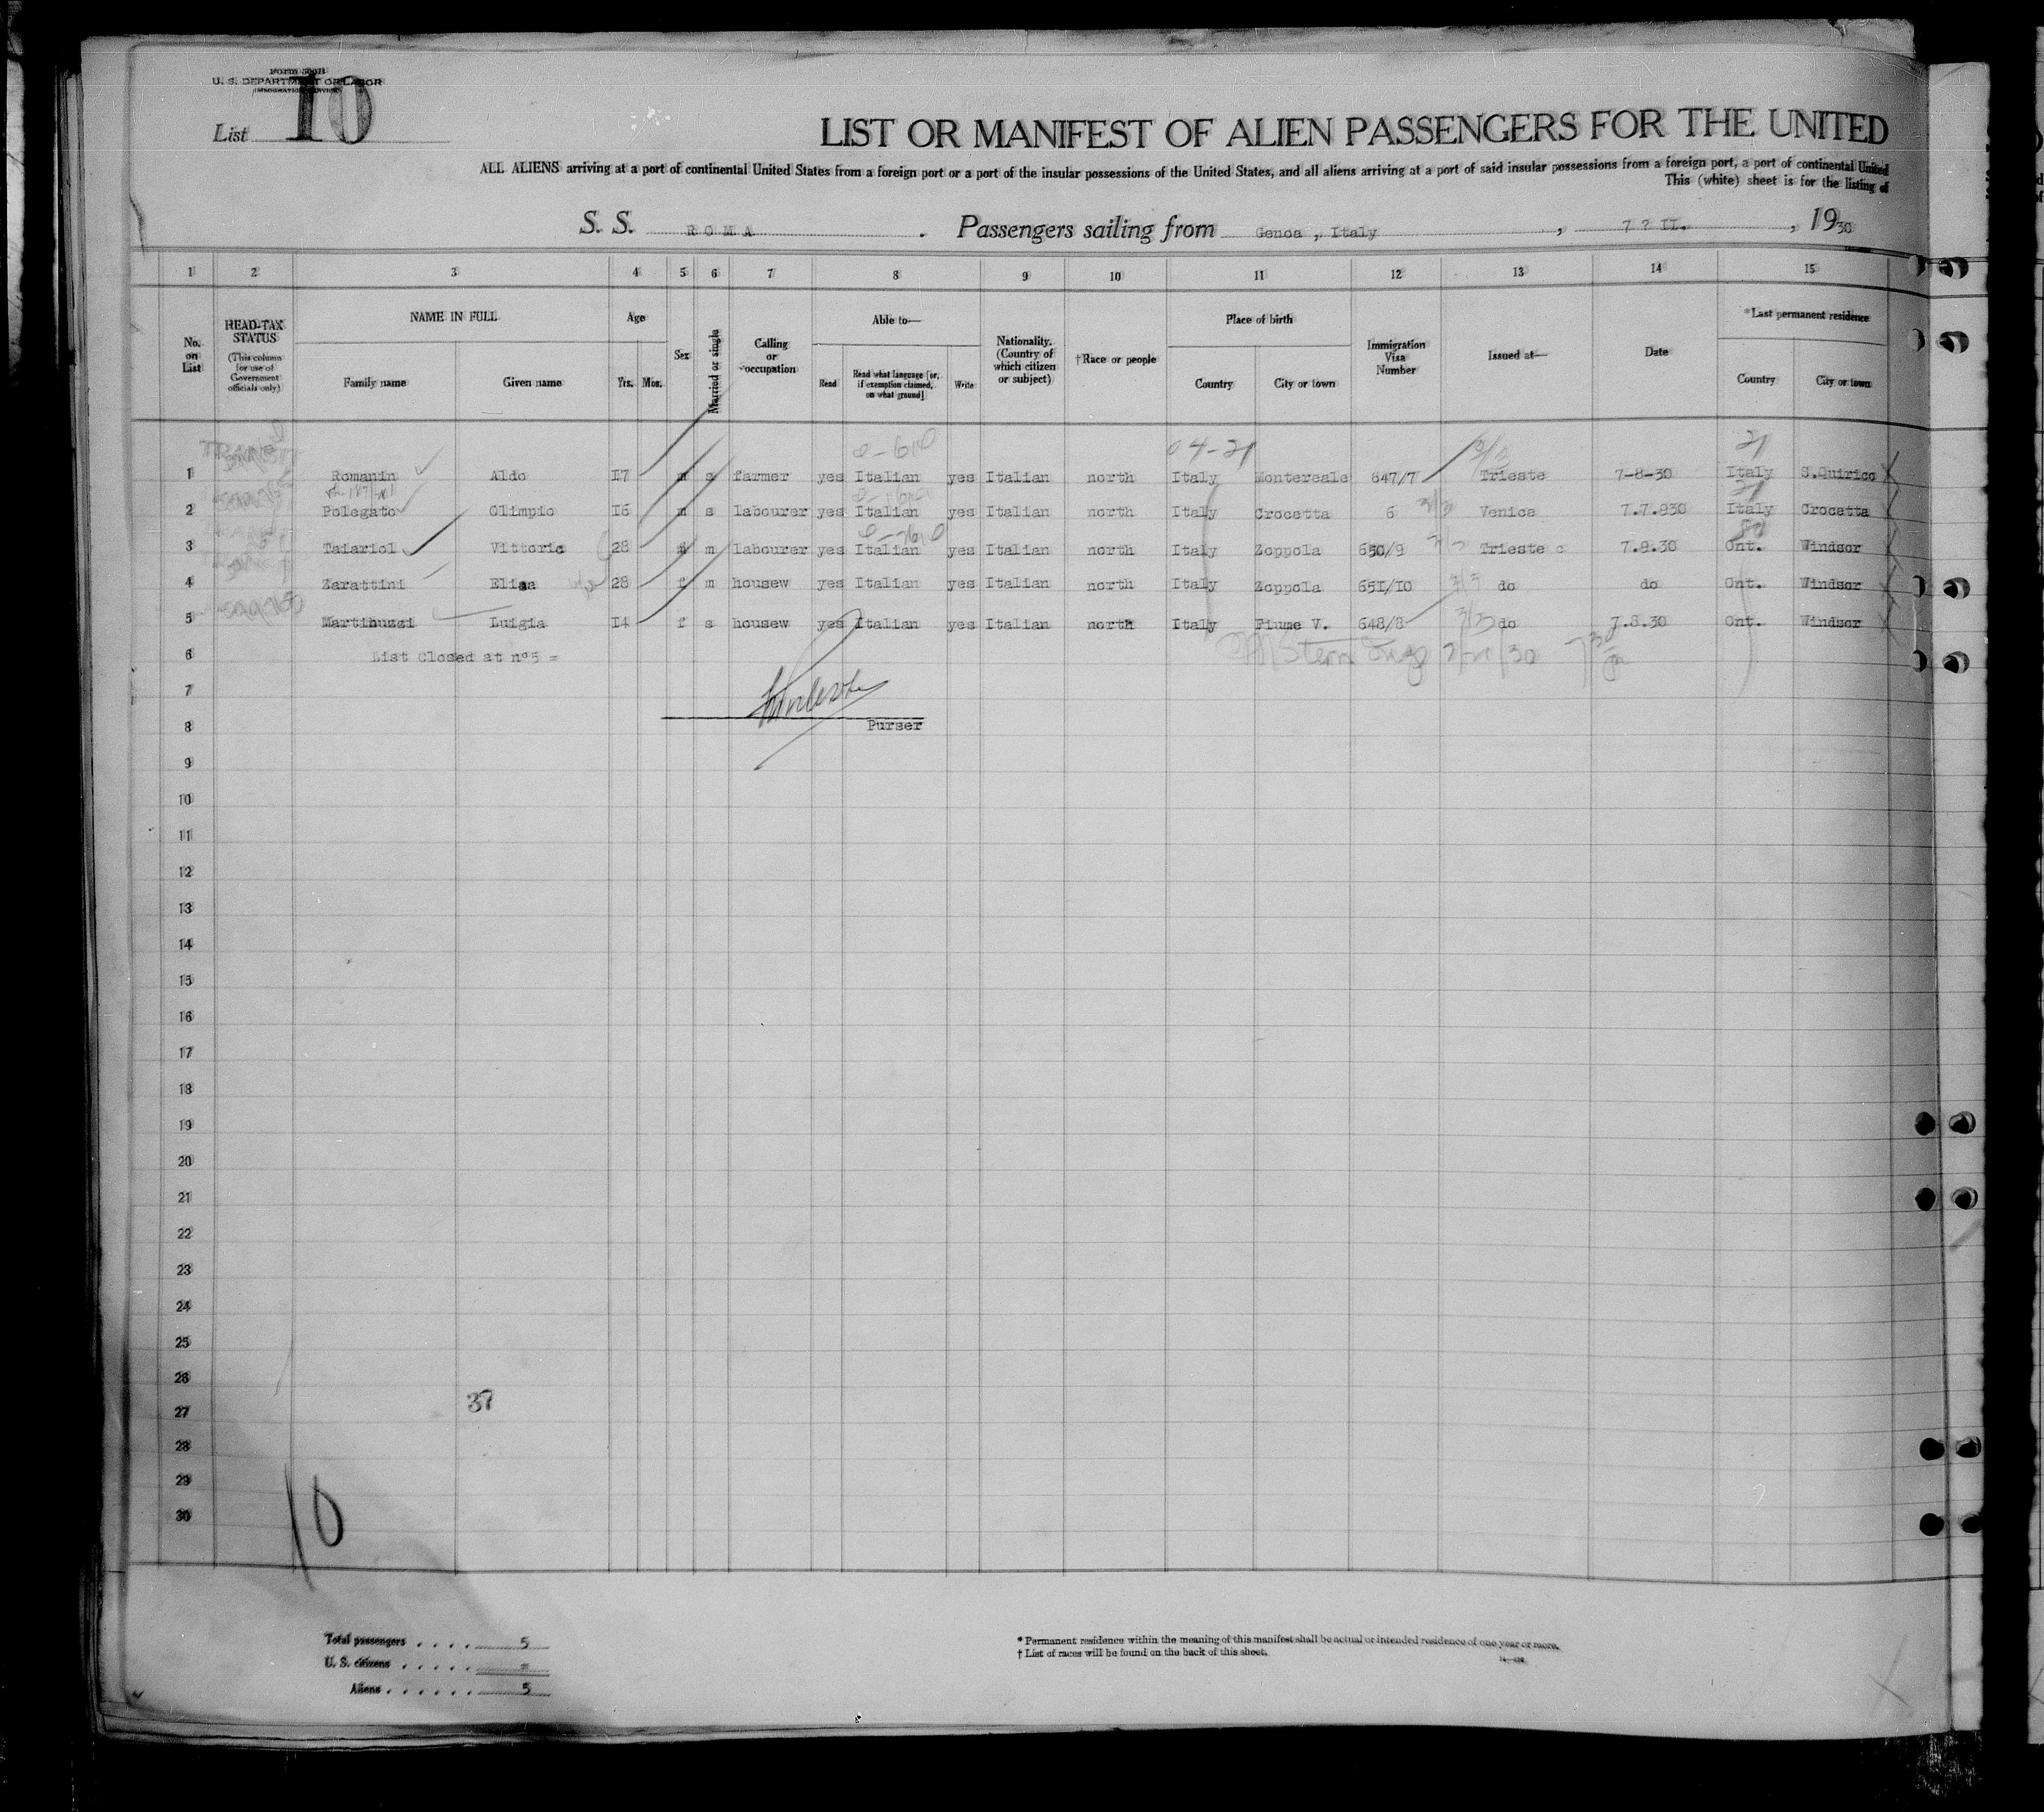 Form 500B
U. S. DEPARTMENT OF LABOR
IMMIGRATION SERVICE
List 10
LIST OR MANIFEST OF ALIEN PASSENGERS FOR THE UNITED
ALL ALIENS arriving at a port of continental United States from a foreign port or a port of the insular possessions of the United States, and all aliens arriving at a port of said insular possessions from a foreign port, a port of continental United
This (white) sheet is for the listing of
S. S. ROMA . Passengers sailing from Genoa , Italy , 7 ? II. , 1930
1 2 3 4 5 6 7 8 9 10 11 12 13 14 15
No. on List
HEAD-TAX STATUS (This column for use of Government officials only)
NAME IN FULL
Family name Given name
Age
Yrs. Mos.
Sex
Married or single
Calling or occupation
Able to—
Read Read what language [or, if exemption claimed, on what ground] Write
Nationality. (Country of which citizen or subject)
†Race or people
Place of birth
Country City or town
Immigration Visa Number
Issued at—
Date
*Last permanent residence
Country City or town
04-21 21
1 Romanin Aldo I7 m s farmer yes Italian yes Italian north Italy Montereale 647/7 Trieste 7-8-30 Italy S.Quirico
2 Polegato Olimpio I6 m s labourer yes Italian yes Italian north Italy Crocetta 6 Venice 7.7.930 Italy Crocetta
3 Taiariol Vittorio 28 m m labourer yes Italian yes Italian north Italy Zoppola 650/9 Trieste 7.9.30 Ont. Windsor
4 Zarattini Elisa 28 f m housew yes Italian yes Italian north Italy Zoppola 651/10 do do Ont. Windsor
5 Martinuzzi Luigia I4 f s housew yes Italian yes Italian north Italy Fiume V. 648/8 do 7.8.30 Ont. Windsor
6 List Closed at n°5 =
7
8 Purser
9
10
11
12
13
14
15
16
17
18
19
20
21
22
23
24
25
26
27 37
28
29
30
10
Total passengers . . . . 5
U. S. citizens . . . . . =
Aliens . . . . . . 5
* Permanent residence within the meaning of this manifest shall be actual or intended residence of one year or more.
† List of races will be found on the back of this sheet.